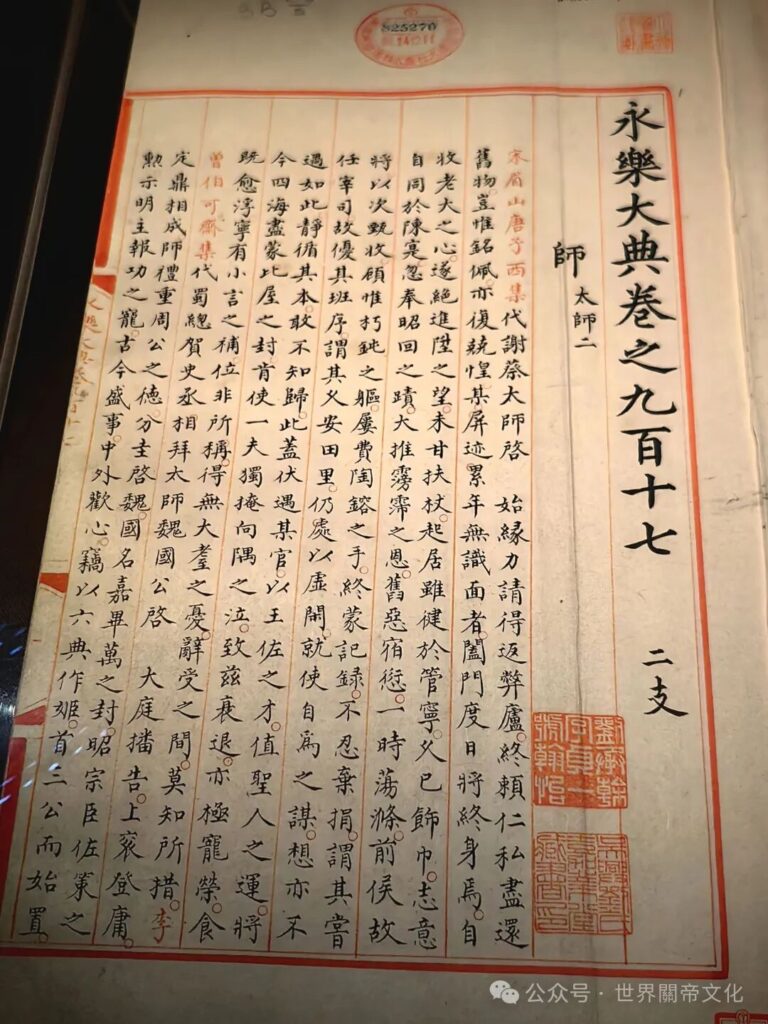 825276
永樂大典卷之九百十七 二支
師 太師二
宋眉山唐子西集代謝蔡太師啓 始緣力請得返弊廬終賴仁私盡還
舊物豈惟銘佩亦復兢惶某屏迹累年無識面者闔門度日將終身焉自
收老大之心遂絕進陞之望未甘扶杖起居雖健於管寧父已飾巾志意
自同於陳寔忽奉昭回之蹟大推霶霈之恩舊惡宿愆一時蕩滌前侯故
將以次甄收顧惟朽鈍之軀屢費陶鎔之手終蒙記録不忍棄捐謂其嘗
任宰司故優其班序謂其父安田里仍處以虛閒就使自爲之謀想亦不
遇如此靜循其本敢不知歸此蓋伏遇某官以王佐之才值聖人之運將
今四海盡蒙比屋之封肯使一夫獨掩向隅之泣致兹衰退亦極寵榮食
既愈浮寧有小言之補位非所稱得無大耋之憂辭受之間莫知所措李
曾伯可齋集代蜀總賀史丞相拜太師魏國公啓 大庭播告上衮登庸
定鼎相成師禮重周公之德分圭啓魏國名嘉畢萬之封昭宗臣佐策之
勲示明主報功之寵古今盛事中外歡心竊以六典作姬首三公而始置
劉承幹字貞一號翰怡
吳興劉氏嘉業堂藏書印
公众号·世界關帝文化